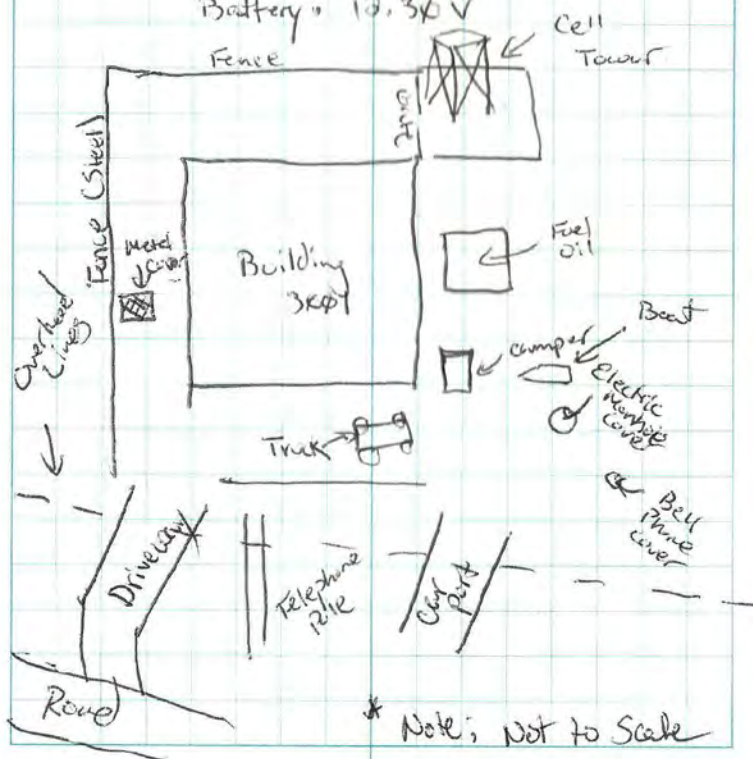 Battery: 12.30 V
Cell
Tower
Fence
Fence
Fence (Steel)
Metal
Cover
Building
Fuel
oil
Boat
camper
Overhead
Lines
Electric
Manhole
Cover
Truck
Bell
Phone
Cover
Driveway
Telephone
Pole
Car
port
Road
* Note: Not to Scale